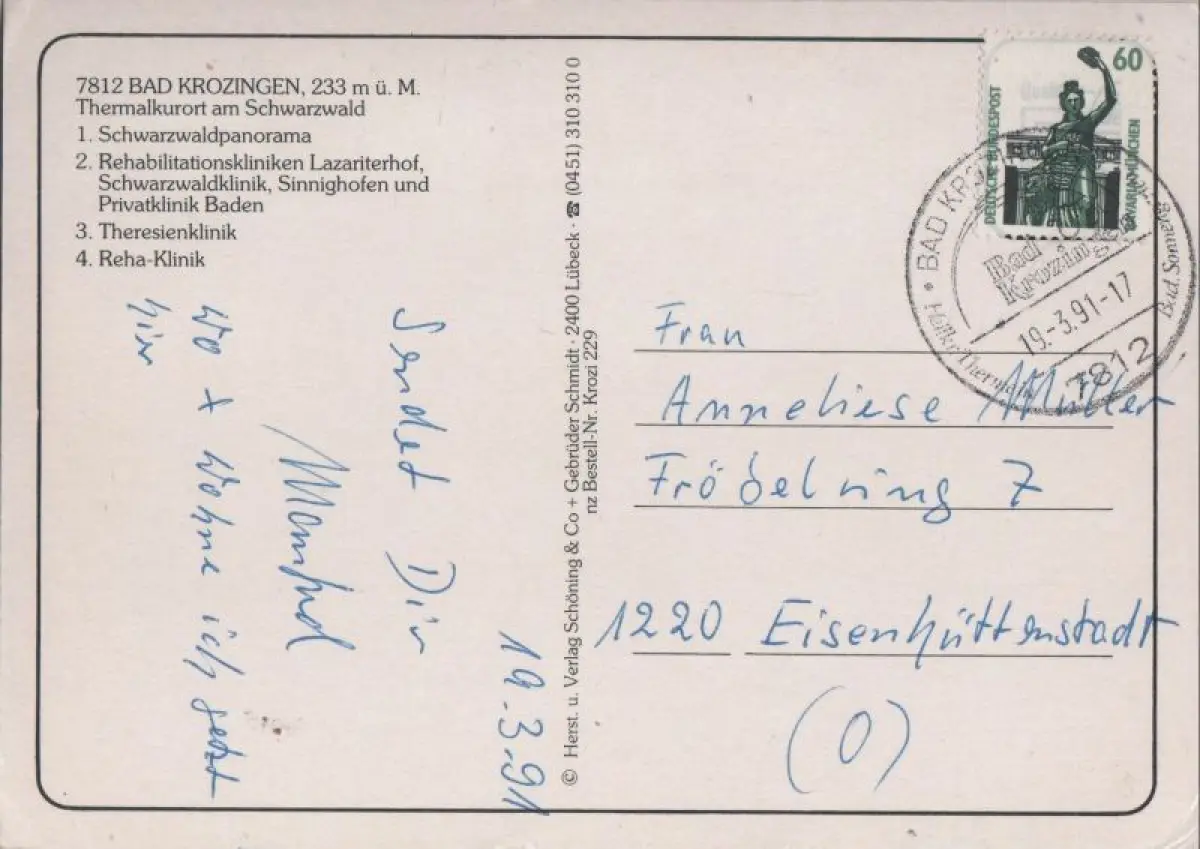 7812 BAD KROZINGEN, 233 m ü. M.
Thermalkurort am Schwarzwald
1. Schwarzwaldpanorama
2. Rehabilitationskliniken Lazariterhof,
Schwarzwaldklinik, Sinnighofen und
Privatklinik Baden
3. Theresienklinik
4. Reha-Klinik
19.3.91
Sendet Dir
Manfred
wo x wohne ich jetzt
hier
© Herst. u. Verlag Schöning & Co + Gebrüder Schmidt · 2400 Lübeck · ☎ (0451) 310 310 0
nz Bestell-Nr. Krozi 229
60
DEUTSCHE BUNDESPOST
BAVARIA MÜNCHEN
BAD KRO
Bad
Krozingen
19.-3.91-17
7812
Frau
Anneliese Müller
Fröbelring 7
1220 Eisenhüttenstadt
(O)